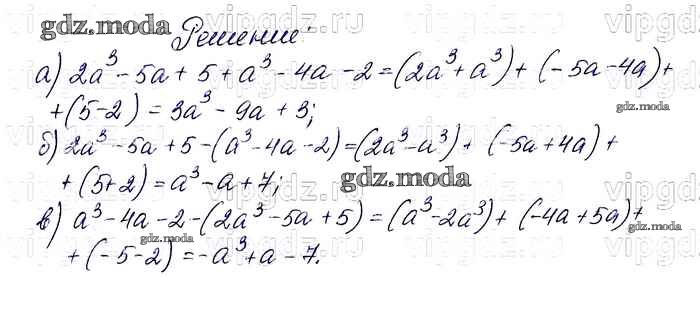 gdz.moda
Решение:
а) 2a³ - 5a + 5 + a³ - 4a - 2 = (2a³ + a³) + (-5a - 4a) +
+ (5 - 2) = 3a³ - 9a + 3;
gdz.moda
б) 2a³ - 5a + 5 - (a³ - 4a - 2) = (2a³ - a³) + (-5a + 4a) +
+ (5 + 2) = a³ - a + 7;
gdz.moda
в) a³ - 4a - 2 - (2a³ - 5a + 5) = (a³ - 2a³) + (-4a + 5a) +
gdz.moda
gdz.moda
+ (-5 - 2) = -a³ + a - 7.